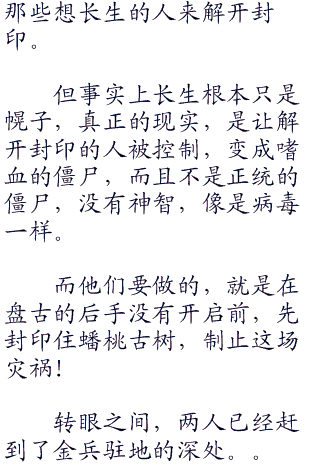 那些想长生的人来解开封
印。
但事实上长生根本只是
幌子，真正的现实，是让解
开封印的人被控制，变成嗜
血的僵尸，而且不是正统的
僵尸，没有神智，像是病毒
一样。
而他们要做的，就是在
盘古的后手没有开启前，先
封印住蟠桃古树，制止这场
灾祸！
转眼之间，两人已经赶
到了金兵驻地的深处。。